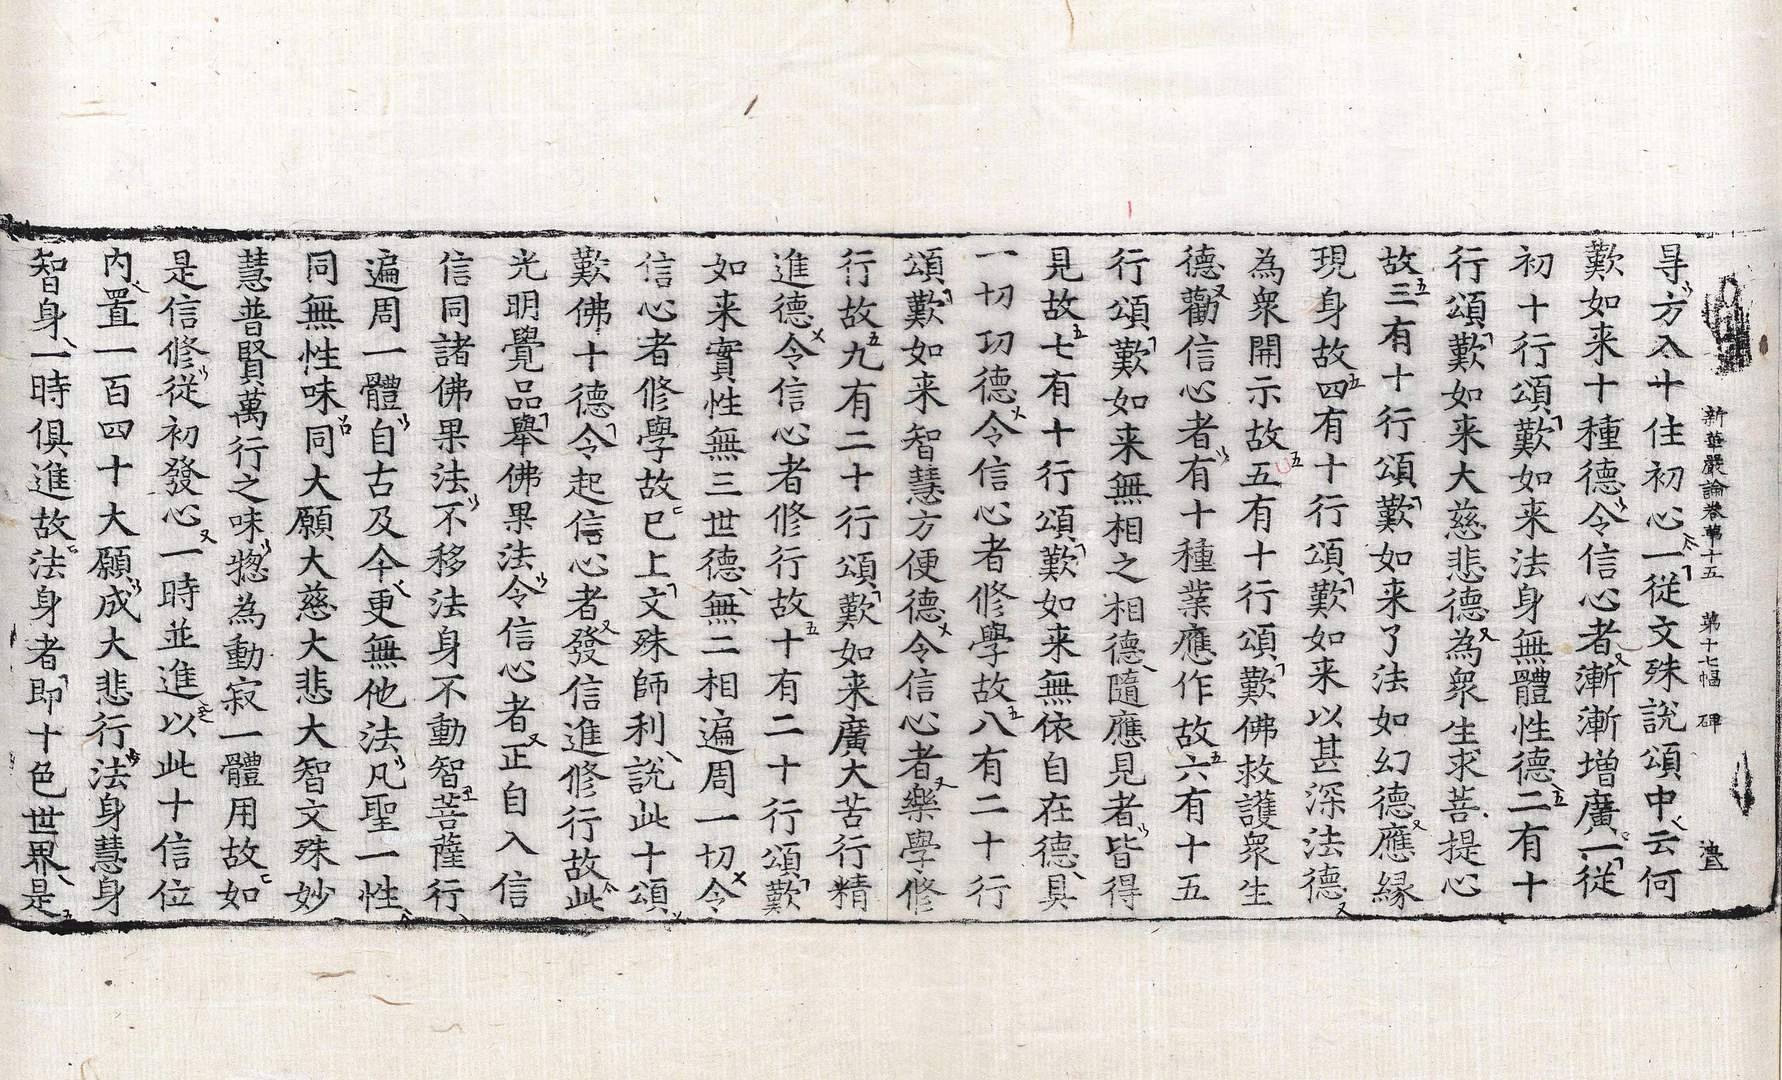 新華嚴論卷第十五　第十七幅　碑
尋方入十住初心一從文殊說頌中云何
歎如来十種德令信心者漸漸增廣一從
初十行頌歎如来法身無體性德二有十
行頌歎如来大慈悲德為衆生求菩提心
故三有十行頌歎如来了法如幻德應緣
現身故四有十行頌歎如来以甚深法德
為衆開示故五有十行頌歎佛救護衆生
德勸信心者有十種業應作故六有十五
行頌歎如来無相之相德隨應見者皆得
見故七有十行頌歎如来無依自在德具
一切功德令信心者修學故八有二十行
頌歎如来智慧方便德令信心者樂學修
行故九有二十行頌歎如来廣大苦行精
進德令信心者修行故十有二十行頌歎
如来實性無三世德無二相遍周一切令
信心者修學故已上文殊師利說此十頌
歎佛十德令起信心者發信進修行故此
光明覺品舉佛果法令信心者正自入信
信同諸佛果法不移法身不動智菩薩行
遍周一體自古及今更無他法凡聖一性
同無性味同大願大慈大悲大智文殊妙
慧普賢萬行之味揔為動寂一體用故如
是信修從初發心一時並進以此十信位
內置一百四十大願成大悲行法身慧身
智身一時俱進故法身者即十色世界是